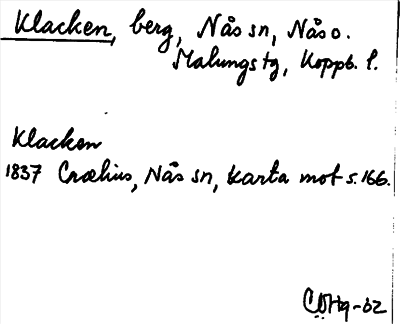 Klacken, berg, Nås sn, Nås o.
Malungs tg, Koppb. l.
Klacken
1837 Crælius, Nås sn, karta mot s. 166.